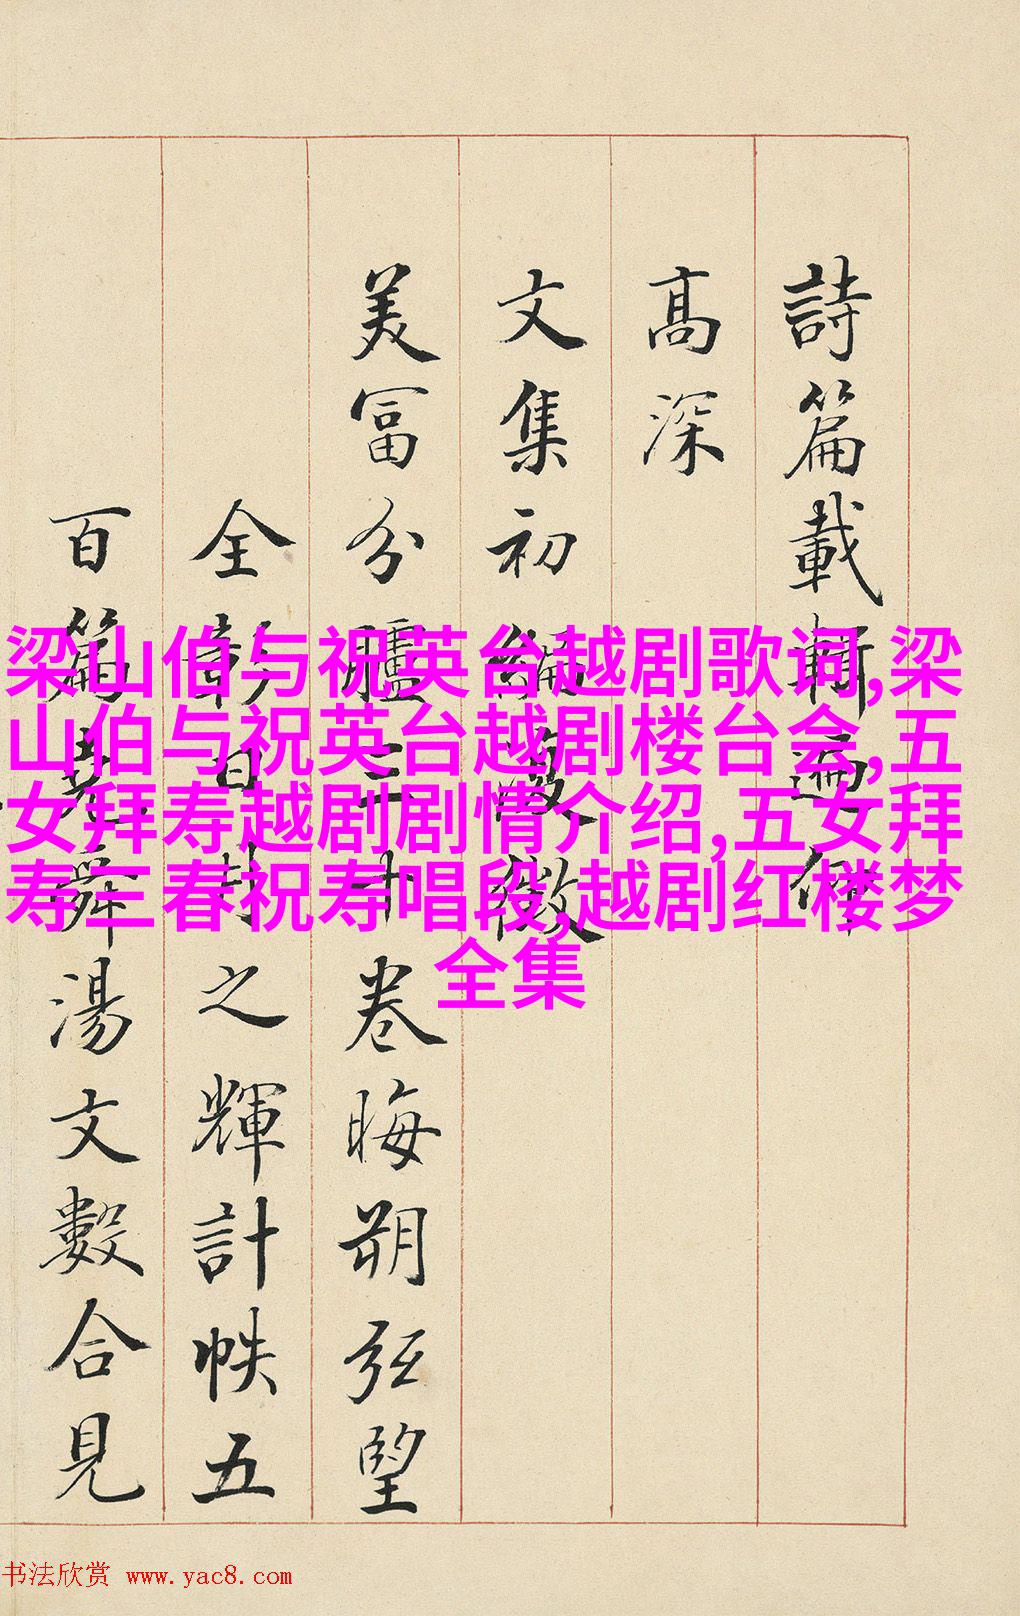 詩篇載斬遍備
高深
文集初編覆檄
美富分臚二十卷晦朔弦望
全彰日月之輝計帙五
百篇堯舜湯文數合見
梁山伯与祝英台越剧歌词,梁
山伯与祝英台越剧楼台会,五
女拜寿越剧剧情介绍,五女拜
寿三春祝寿唱段,越剧红楼梦
全集
书法欣赏 www.yac8.com